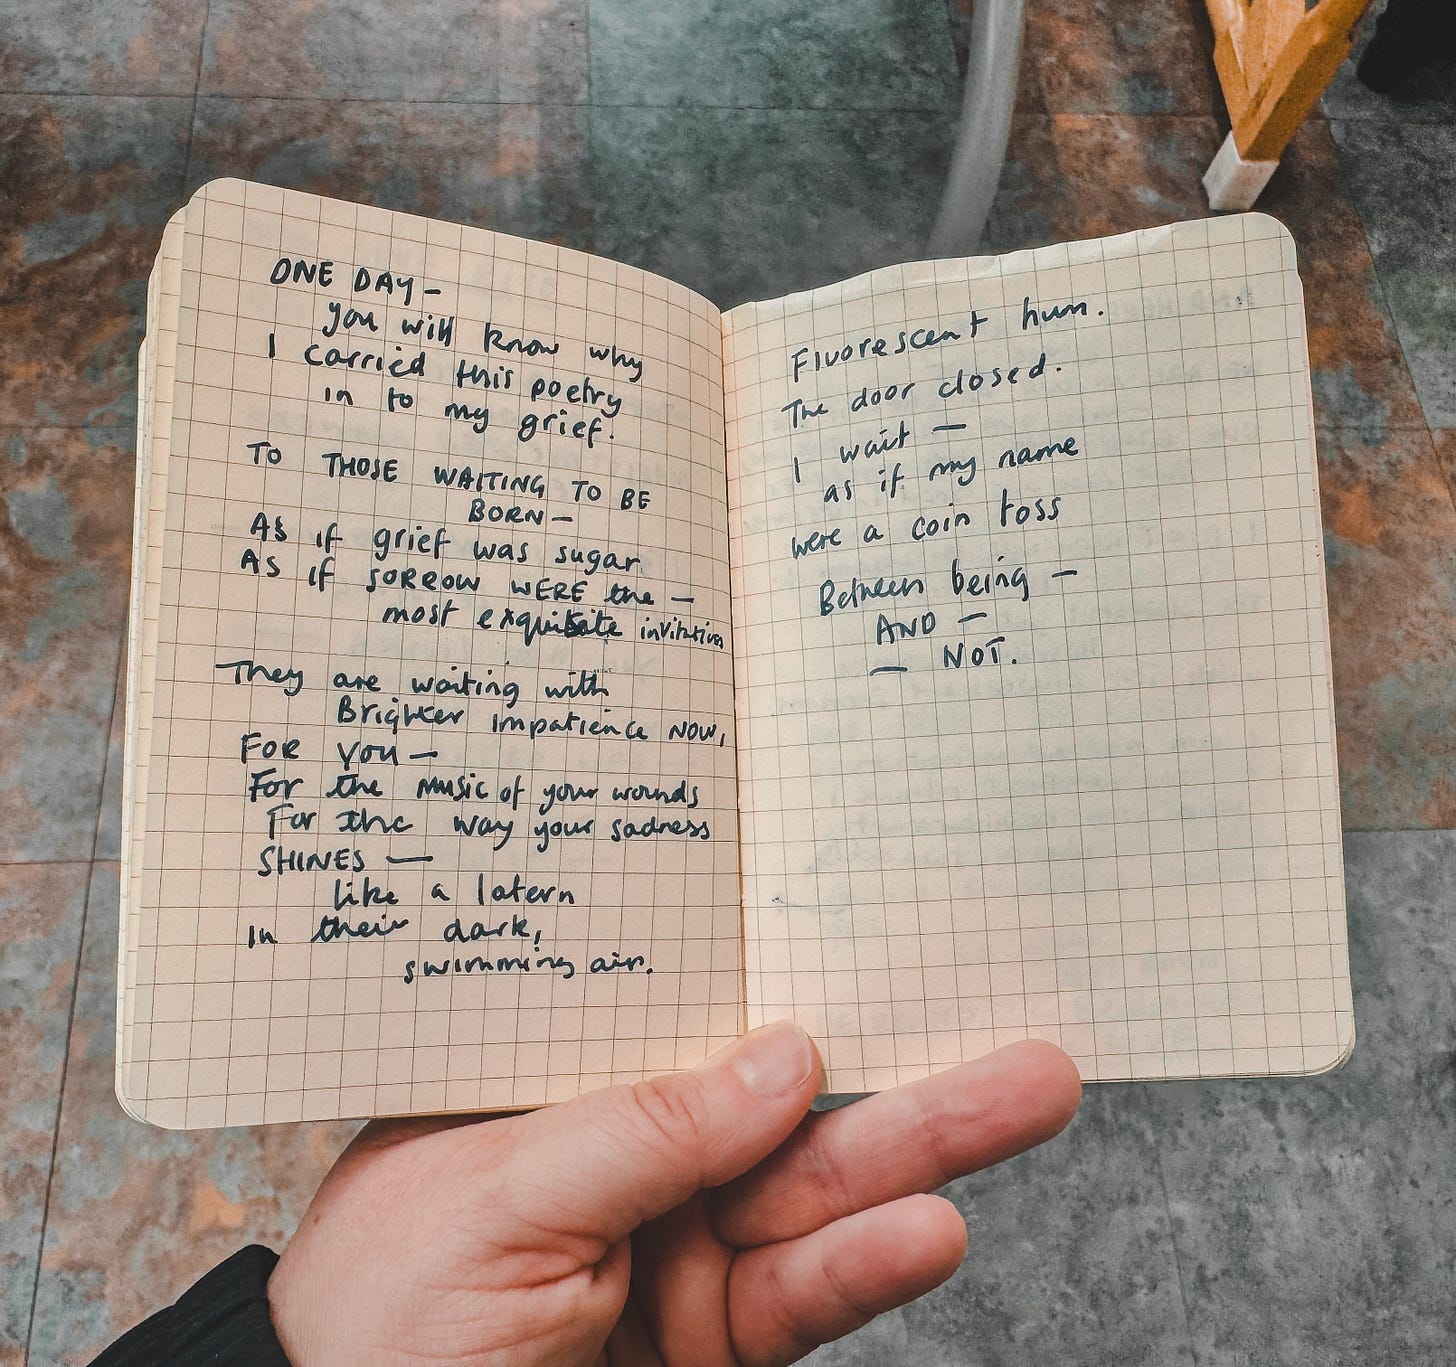 ONE DAY—
you will know why
I carried this poetry
in to my grief.
TO THOSE WAITING TO BE
BORN—
As if grief was sugar
AS if SORROW WERE the —
most exquisite invitation
They are waiting with
Brighter impatience NOW,
FOR YOU—
For the music of your wounds
For the way your sadness
SHINES —
like a latern
In their dark,
swimming air.
Fluorescent hum.
The door closed.
I wait —
as if my name
were a coin toss
Between being —
AND —
— NOT.